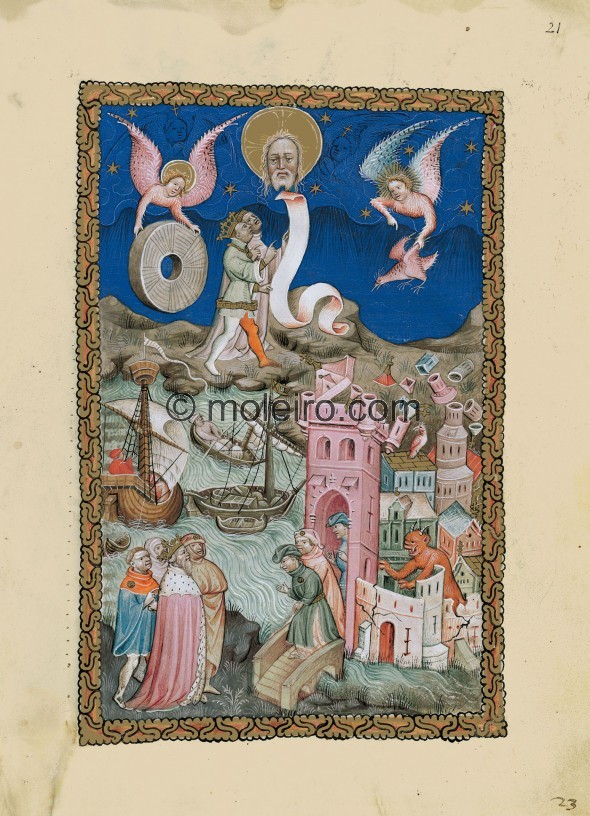 21
© moleiro.com
23